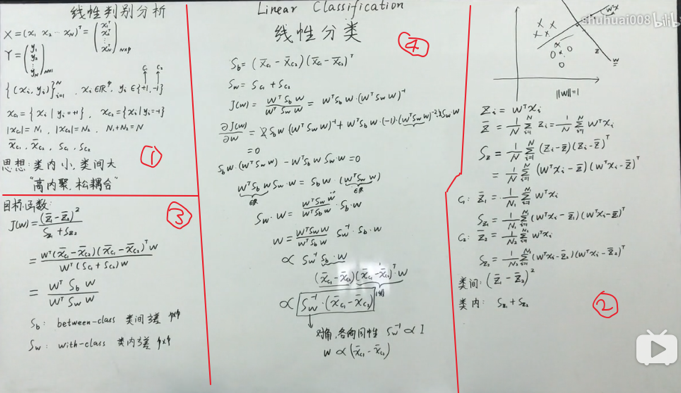 线性判别分析
X = (x₁ x₂ ⋯ x_N)ᵀ = (x₁ᵀ x₂ᵀ ⋮ x_Nᵀ)_{N×p}
Y = (y₁ y₂ ⋮ y_N)_{N×1}
C₁ C₂
{(xᵢ, yᵢ)}ᵢ₌₁ᴺ, xᵢ∈ℝᵖ, yᵢ∈{+1, -1}
x_{c₁} = {xᵢ | yᵢ=+1}, x_{c₂} = {xᵢ | yᵢ=-1}
|x_{c₁}| = N₁, |x_{c₂}| = N₂, N₁+N₂ = N
x̄_{c₁}, x̄_{c₂}, S_{c₁}, S_{c₂}
思想: 类内小, 类间大
"高内聚, 松耦合"
①
③
目标函数:
J(w) = (z̄₁ - z̄₂)² / (S_{z₁} + S_{z₂})
= wᵀ(x̄_{c₁} - x̄_{c₂})(x̄_{c₁} - x̄_{c₂})ᵀw / wᵀ(S_{c₁} + S_{c₂})w
= wᵀ S_b w / wᵀ S_w w
S_b: between-class 类间方差 p×p
S_w: with-class 类内方差 p×p
Linear Classification
线性分类
④
S_b = (x̄_{c₁} - x̄_{c₂})(x̄_{c₁} - x̄_{c₂})ᵀ
S_w = S_{c₁} + S_{c₂}
J(w) = wᵀ S_b w / wᵀ S_w w = wᵀ S_b w · (wᵀ S_w w)⁻¹
∂J(w)/∂w = 2 S_b w (wᵀ S_w w)⁻¹ + wᵀ S_b w · (-1) · (wᵀ S_w w)⁻² · 2 S_w w
= 0
S_b w (wᵀ S_w w) - wᵀ S_b w S_w w = 0
wᵀ S_b w S_w w = S_b w (wᵀ S_w w)
∈ℝ ∈ℝ
S_w · w = wᵀ S_w w / wᵀ S_b w · S_b · w
w = wᵀ S_w w / wᵀ S_b w S_w⁻¹ · S_b · w
∝ S_w⁻¹ · S_b · w
(x̄_{c₁} - x̄_{c₂})(x̄_{c₁} - x̄_{c₂})ᵀ w
∝ S_w⁻¹ · (x̄_{c₁} - x̄_{c₂})
对角, 各向同性 S_w⁻¹ ∝ I
w ∝ (x̄_{c₁} - x̄_{c₂})
shuhuai008
bilibili
‖w‖=1
zᵢ = wᵀxᵢ
z̄ = 1/N Σᵢ₌₁ᴺ zᵢ = 1/N Σᵢ₌₁ᴺ wᵀxᵢ
S_z = 1/N Σᵢ₌₁ᴺ (zᵢ - z̄)(zᵢ - z̄)ᵀ
= 1/N Σᵢ₌₁ᴺ (wᵀxᵢ - z̄)(wᵀxᵢ - z̄)ᵀ
C₁: z̄₁ = 1/N₁ Σᵢ₌₁ᴺ¹ wᵀxᵢ
S_{z₁} = 1/N₁ Σᵢ₌₁ᴺ¹ (wᵀxᵢ - z̄₁)(wᵀxᵢ - z̄₁)ᵀ
C₂: z̄₂ = 1/N₂ Σᵢ₌₁ᴺ² wᵀxᵢ
S_{z₂} = 1/N₂ Σᵢ₌₁ᴺ² (wᵀxᵢ - z̄₂)(wᵀxᵢ - z̄₂)ᵀ
类间: (z̄₁ - z̄₂)²
类内: S_{z₁} + S_{z₂}
②